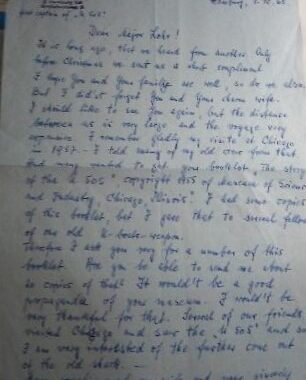 first captain of "U 505"
Hamburg,
Dear Major Lohr!
It is long ago, that we heard from another. Only
before Christmas we sent us a short compliment.
I hope you and your families are well, so do we also.
But I didn't forget you and your charm wife.
I should like to see you again, but the distance
between us is very large and the voyage very
expensive. I remember gladly my visite at Chicago
1957. I told many of my old crew form that
and many wanted to get your booklet "The story
of the U 505" copyright 1955 of Museum of Science
and Industry, Chicago, Illinois. I had some copies
of this booklet, but I gave that to several fellows
of our old U-boats-weapon.
Therefore I ask you very for a number of this
booklet. Are you be able to send me about
10 copies of that? It wouldn't be a good
propaganda of your museum. I wouldn't be
very thankful for that. Several of our friends
visited Chicago and saw the "U 505" and so
I am very interested of the further come out
of the old shark. —
sincerely